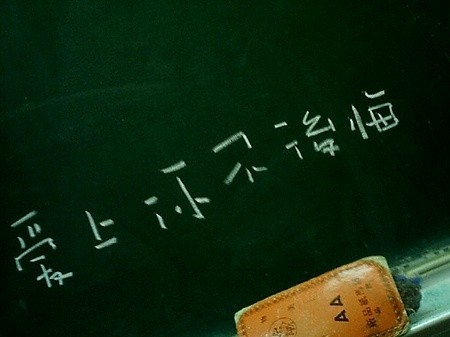 爱上你不後悔
AA